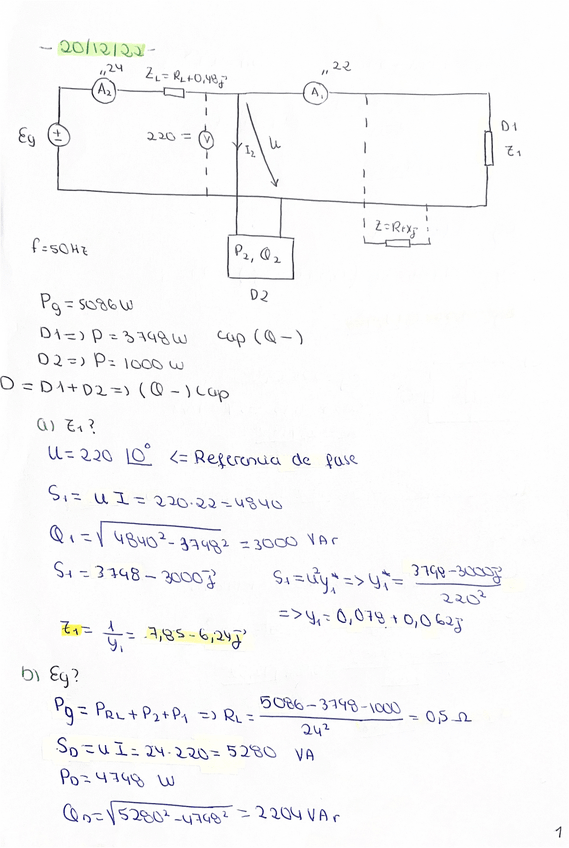 - 20/12/22 -
,,24
A₂
Z_L = R_L + 0,48j
,,22
A₁
Eg
220 =
V
I₂
U
D1
Z₁
Z = R+xj
P₂, Q₂
D2
f = 50 Hz
Pg = 5086 W
D1 => P = 3748 W cap (Q-)
D2 => P = 1000 W
D = D1 + D2 => (Q-) cap
a) Z₁?
U = 220 |0° <= Referencia de fase
S₁ = U I = 220·22 = 4840
Q₁ = √(4840² - 3748²) = 3000 VAr
S₁ = 3748 - 3000j S₁ = U² y₁* => y₁* = (3748 - 3000j) / 220²
=> y₁ = 0,078 + 0,062j
Z₁ = 1/y₁ = 7,85 - 6,24j
b) Eg?
Pg = P_RL + P₂ + P₁ => R_L = (5086 - 3748 - 1000) / 24² = 0,5 Ω
S_D = U I = 24·220 = 5280 VA
P_D = 4748 W
Q_D = √(5280² - 4748²) = 2204 VAr
1